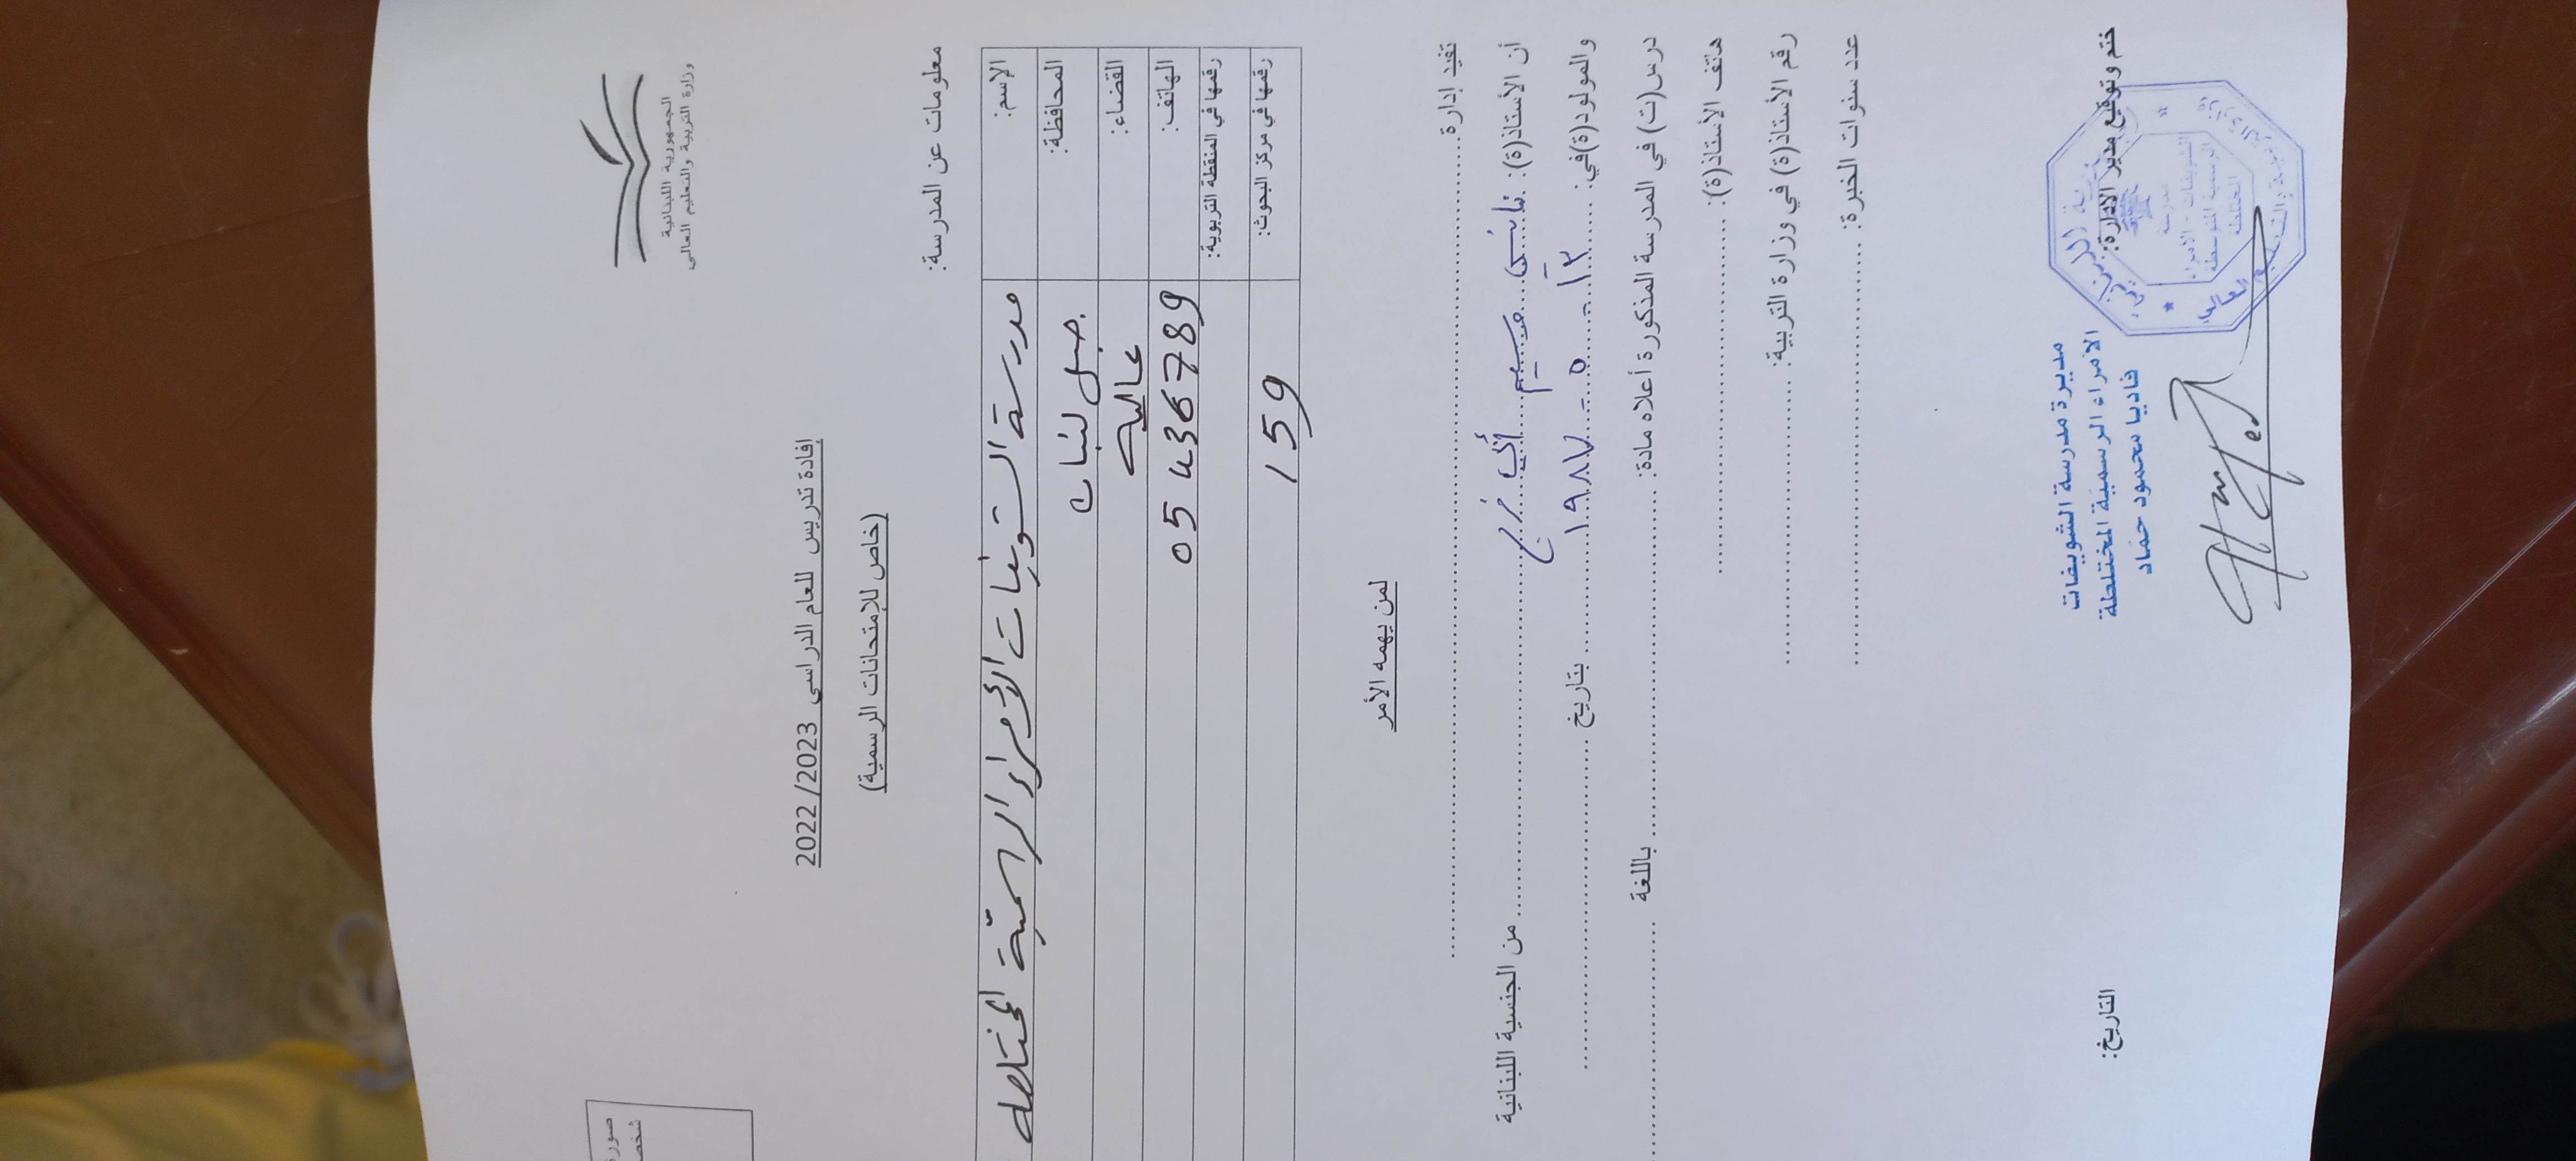 الجمهورية اللبنانية
وزارة التربية والتعليم العالي
صورة
شخصـ
إفادة تدريس للعام الدراسي 2022/2023
(خاص للإمتحانات الرسمية)
معلومات عن المدرسة:
الإسم: مدرسة الشويفات الأمراء الرسمية المختلطة
المحافظة: جبل لبنان
القضاء: عاليه
الهاتف: 05 436789
رقمها في المنقطة التربوية:
رقمها في مركز البحوث: 159
لمن يهمه الأمر
تفيد إدارة
أن الأستاذ(ة): أبي فرج من الجنسية اللبنانية
والمولود(ة)في: بتاريخ
درس(ت) في المدرسة المذكورة أعلاه مادة: باللغة
هاتف الأستاذ(ة):
رقم الأستاذ(ة) في وزارة التربية:
عدد سنوات الخبرة:
ختم وتوقيع مدير الإدارة: التاريخ:
مديرة مدرسة الشويفات
الأمراء الرسمية المختلطة
فاديا محمود حماد